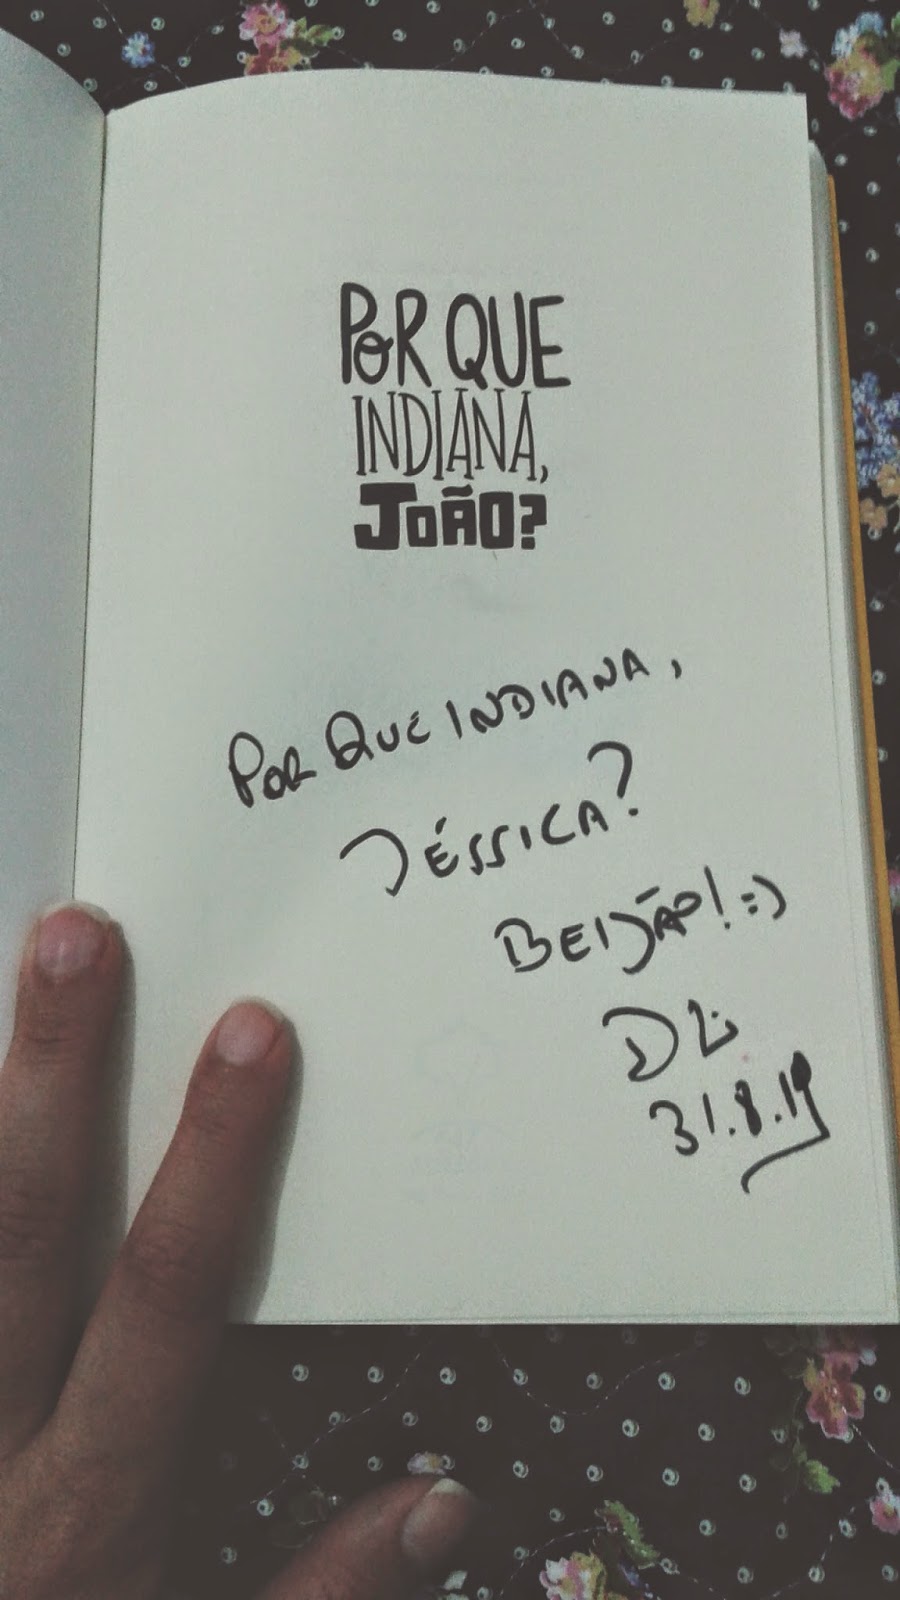 POR QUE
INDIANA,
JOÃO?
POR QUE INDIANA,
JÉSSICA?
BEIJÃO! =)
31.8.14